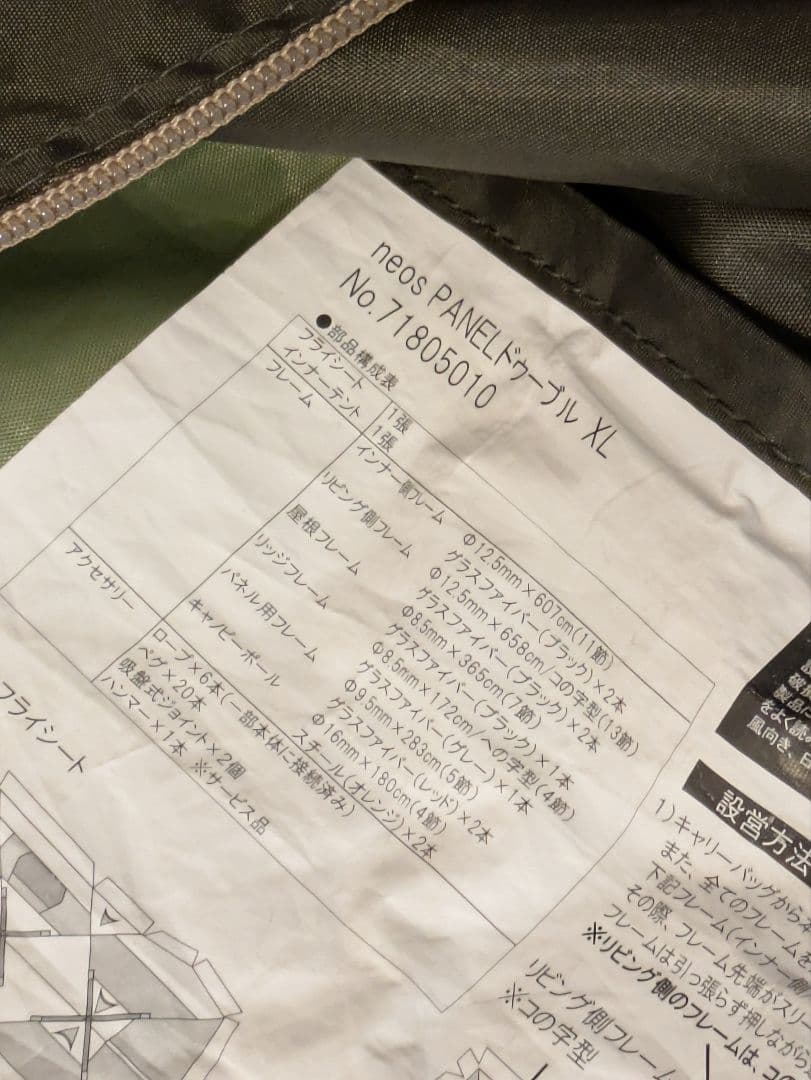 neos PANELドゥーブル XL
No.71805010
●部品構成表
フライシート 1張
インナーテント 1張
フレーム インナー側フレーム Φ12.5mm×607cm(11節)
グラスファイバー(ブラック)×2本
リビング側フレーム Φ12.5mm×658cm/コの字型(13節)
グラスファイバー(ブラック)×2本
屋根フレーム Φ8.5mm×365cm(7節)
グラスファイバー(ブラック)×1本
リッジフレーム Φ8.5mm×172cm/への字型(4節)
グラスファイバー(グレー)×1本
パネル用フレーム Φ9.5mm×283cm(5節)
グラスファイバー(レッド)×2本
キャノピーポール Φ16mm×180cm(4節)
スチール(オレンジ)×2本
アクセサリー ロープ×6本(一部本体に接続済み)
ペグ×20本
吸盤式ジョイント×2個
ハンマー×1本 ※サービス品
フライシート
をよく読
風向き、
設営方法
1)キャリーバッグから
また、全てのフレームを
下記フレーム(インナー側
その際、フレーム先端がスリ
フレームは引っ張らず押しながら
※リビング側のフレームは、コの
リビング側フレーム
※コの字型